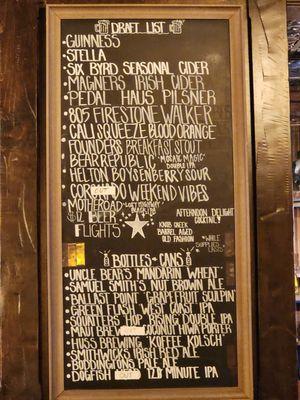 DRAFT LIST
GUINNESS
STELLA
SIX BYRD SEASONAL CIDER
MAGNERS IRISH CIDER
PEDAL HAUS PILSNER
805 FIRESTONE WALKER
CALI SQUEEZE BLOOD ORANGE
FOUNDERS BREAKFAST STOUT
BEAR REPUBLIC "MOSAIC MAGIC"
DOUBLE IPA
HELTON BOYSENBERRY SOUR
WEEKEND VIBES
MOTHEROAD "LOST HIGHWAY"
BLACK IPA
$12 BEER
FLIGHTS
AFTERNOON DELIGHT
COCKTAIL
KNOB CREEK
BARREL AGED
OLD FASHION
WHILE
SUPPLIES
LAST
BOTTLES + CANS
UNCLE BEAR'S "MANDARIN WHEAT"
SAMUEL SMITH'S NUT BROWN ALE
BALLAST POINT "GRAPEFRUIT SCULPIN"
GREEN FLASH WEST COAST IPA
SCHUNTERS HOP RISING DOUBLE IPA
MAUI BREW COCONUT HIWA PORTER
HUSS BREWING "KOFFEE KOLSCH"
SMITHWICKS IRISH RED ALE
BODDINGTONS PALE ALE
DOGFISH 120 MINUTE IPA